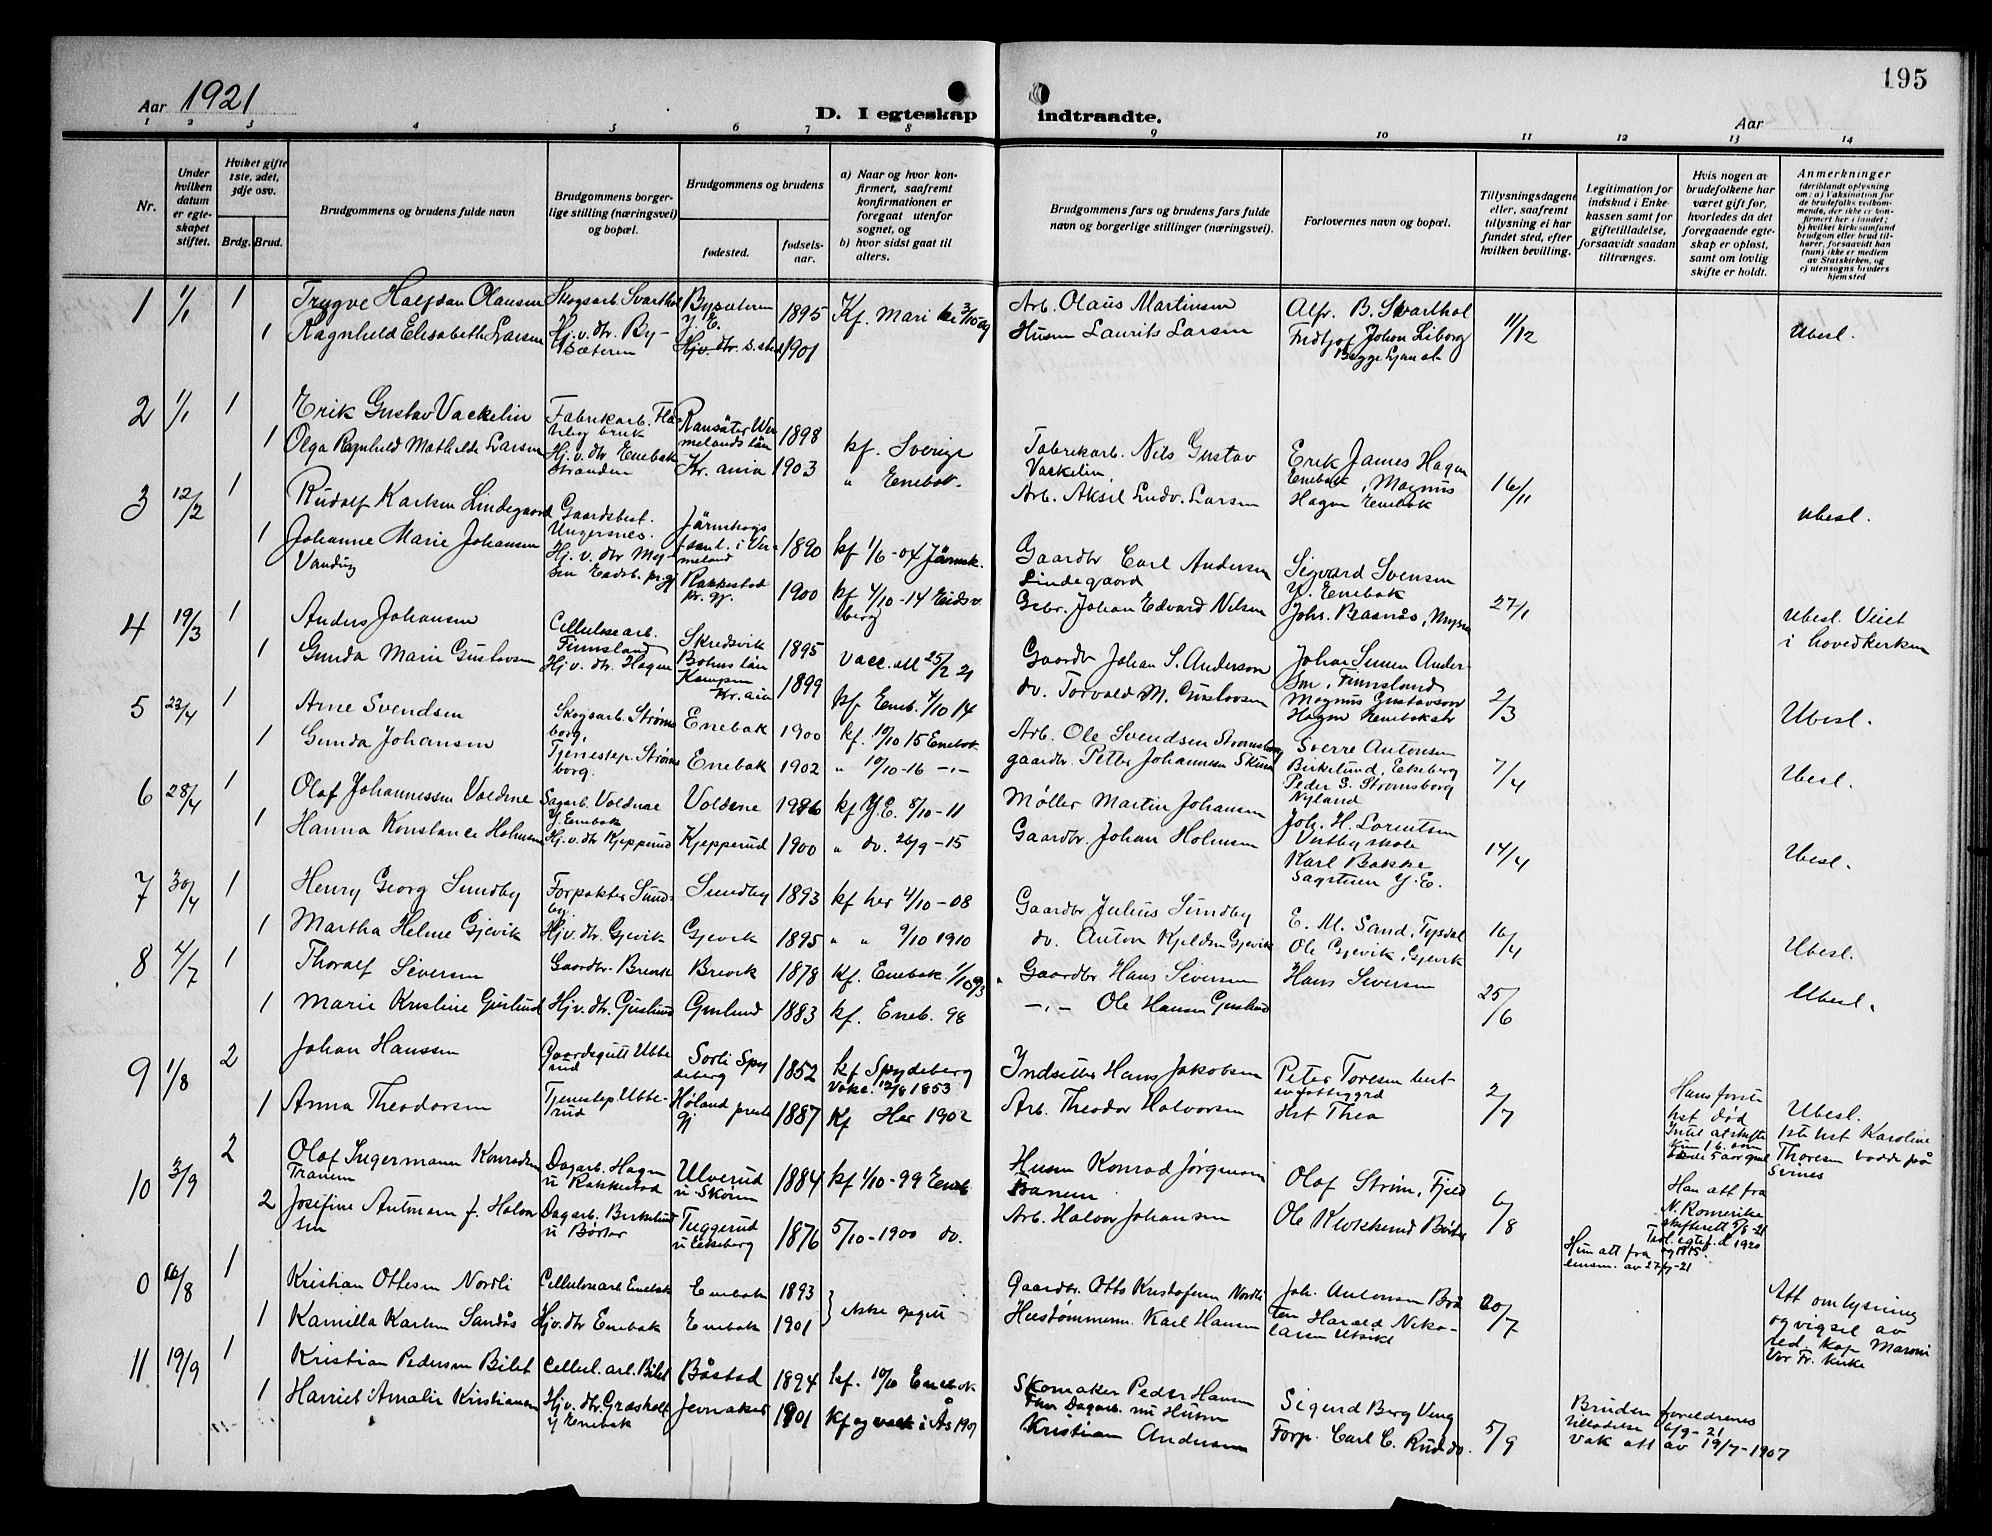 195
Aar 1921
D. I egteskap indtraadte.
Aar
1 2 3 4 5 6 7 8 9 10 11 12 13 14
Nr.
Under hvilken datum er egteskapet stiftet.
Hviket gifte 1ste, 2det, 3dje osv.
Brdg. Brud.
Brudgommens og brudens fulde navn
Brudgommens borgerlige stilling (næringsvei) og bopæl.
Brudgommens og brudens
fødested.
fødselsaar.
a) Naar og hvor konfirmert, saafremt konfirmationen er foregaat utenfor sognet, og
b) hvor sidst gaat til alters.
Brudgommens fars og brudens fars fulde navn og borgerlige stillinger (næringsvei).
Forlovernes navn og bopæl.
Tillysningsdagene eller, saafremt tillysning ei har fundet sted, efter hvilken bevilling.
Legitimation for indskud i Enkekassen samt for giftetilladelse, forsaavidt saadan tiltrænges.
Hvis nogen av brudefolkene har været gift for, hvorledes da det foregaaende egteskap er opløst, samt om lovlig skifte er holdt.
Anmerkninger
1 1/1 1 Trygve Halfdan Olausen Skogsarb Svarthol Bysæteren Y. E. 1895 Kf. Mari
Arb. Olaus Martinsen Alfr. B. Svarthol 11/12 Ubesl.
1 Ragnhild Elisabeth Larsen Hj. v. dtr. Bysæteren 1901
Husm Laurits Larsen Fridtjof Johan Siborg
2 1/1 1 Erik Gustav Vackelin Fabrikarb. Ransäter Wermelands län 1898 kf. Sverige
Fabrikarb. Nils Gustav Vackelin Erik James Hagen Enebak, Magnus Hagen Enebak 16/11 Ubesl.
1 Olga Ragnhild Mathilde Larsen Hj. v. dtr Enebak Stranden Kr. ania 1903 " Enebak.
Arb. Aksil Ludv. Larsen
3 12/2 1 Rudolf Karlsen Lindegaard Gaardsbest. Ungersnes. 1890 kf 1/6-04
Gaardbr Carl Andersen Lindegaard Sigvard Svensen Y. Enebak 27/1 Ubesl. Viet i hovedkerken
1 Johanne Marie Johansen Vandug Rakkestad pr. gj. 1900 kf 4/10-14 Eidsberg
Gbr. Johan Edvard Nilsen Johs. Basnes, Mysen
4 19/3 1 Anders Johansen Cellulosearb. Finnsland Skredsvik Bohus län 1895 Vacc. att 25/2 21
Gaardbr Johan S. Anderson Johan Simen Anderson, Finnsland 2/3 Ubesl.
1 Gunda Marie Gustavsen Hj. v. dtr. Hagen Kampen Kr. ania 1899 kf Eneb. 4/10 14
do. Torvald M. Gustavsen Magnus Gustavson Hagen
5 23/4 1 Arne Svendsen Skogsarb. Strømsborg, Enebak 1900 kf. 10/10 15 Enebak
Arb. Ole Svendsen Strømsborg Sverre Antonsen Birkelund, Ekeberg 7/4 Ubesl.
1 Gunda Johansen Tjenestep. Strømsborg. Enebak 1902 " 10/10-16 -"-
gaardbr. Petter Johannesen Peder S. Strømsborg Nyland
6 28/4 1 Olaf Johannessen Voldene Sagarb. Y. Enebak Voldene kf Y. E. 8/10-11
Møller Martin Johansen Joh. H. Lorentsen Vestby skole 14/4 Ubesl.
1 Hanna Konstance Holmsen Hj. v. dtr Kjepperud Kjepperud 1900 " do. 26/9-15
Gaardbr. Johan Holmsen Karl Bakke Y. E.
7 30/4 1 Henry Georg Sundby Forpakter Sundby. Sundby 1893 kf her 4/10-08
Gaardbr Julius Sundby E. M. Sand, 16/4 Ubesl.
1 Martha Helene Gjevik Hj v. dtr. Gjevik Gjevik 1895 " " 9/10 1910
do. Anton Kjeldsen Gjevik Ole Gjevik, Gjevik
8 2/7 1 Thoralf Siversen Gaardbr. Brevik Brevik 1878 kf. Enebak. 1/10 93
Gaardbr Hans Siversen Hans Siversen 25/6 Ubesl.
1 Marie Kristine Guslund Hj v. dtr. Guslund Guslund 1883 kf. Eneb. 98
-"- Ole Hansen Guslund
9 1/8 2 Johan Hanssen Gaardsgutt Ubberud Sorli Spydeberg 1852 kf Spydeberg Vakc. 12/8 1853
Indsitter Hans Jakobsen Peter Toresen 2/7 Ubesl.
1 Anna Theodorsen Tjenestep Ubberud Høland prestegj 1887 Kf Her 1902
Arb. Theodor Halvorsen Hst Thea
Hans første hst død 1ste hst Karoline Thoresen bodde paa Svines
10 3/9 2 Olaf Ingermann Konradsen Tranem Dagarb. Hagen u Rakkestad Ulverud 1884 kf 1/10-99 Eneb
Husm Konrad Jørgensen Tranem Olaf Strøm, Fjeld 6/8 Han att fra N. Romerike skifterett 5/8-21
2 Josefine Antonsen f. Halvorsen Dagarb. Birkelund u Børter Tuggerud u Ekeberg 1876 5/10-1900 do.
Arb. Halvor Johansen Ole Klokkerud
Hun att fra av 27/7-21
0 16/8 1 Kristian Ottesen Nordli Cellulosearb Enebak Enebak 1893 } ikke opgitt
Gaardbr. Otto Kristofersen Nordli Joh. Antonsen 20/7
1 Kamilla Karlsen Sandås Hj. v. dtr Enebak Enebak 1901
Karl Hansen Harald Nikolaisen Utsikt
Att om lysning og vigsel av red. kap Maroni Vor Fr. kirke
11 19/9 1 Kristian Pedersen Bilet Cellul. arb. Bilet Båstad 1894 kf. 10/10 Enebak
Skomaker Peder Hansen Sigurd Berg Veng 5/9
1 Harriet Amalie Kristiansen Hj v. dtr Græsholt y Enebak Jevnaker 1901 Kf og vack i Ås
Før Dagarb. nu Husm Kristian Andersen Forp. Carl C. Rud do.
Bruden foreldrenes tilladelse 6/9-21
Vak att av 19/7-1907